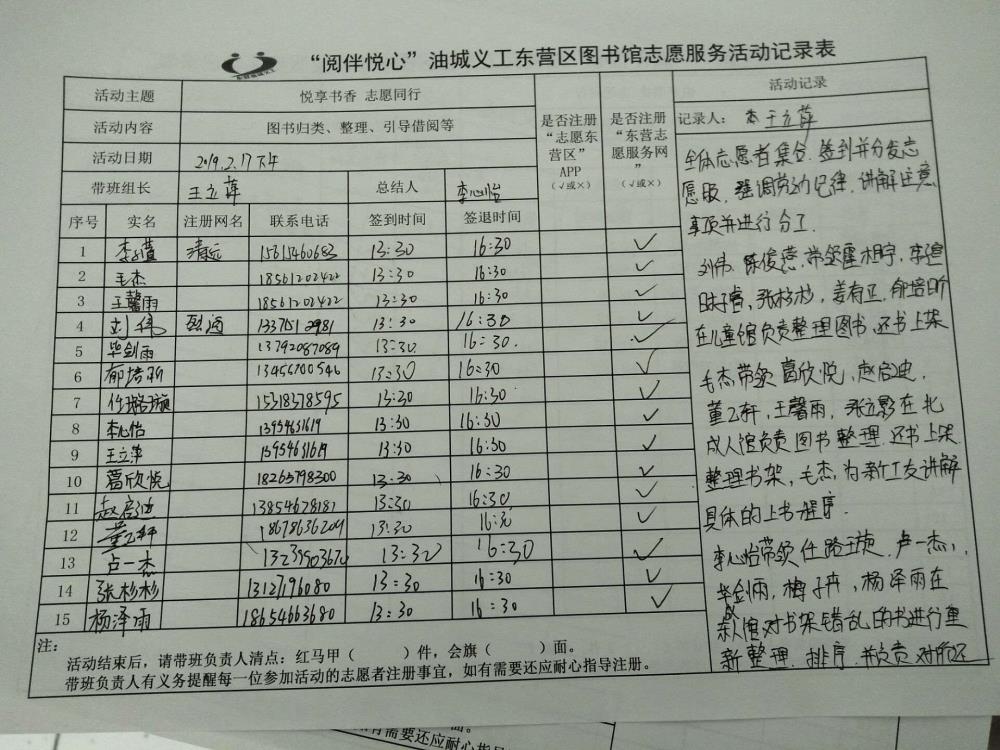 “阅伴悦心”油城义工东营区图书馆志愿服务活动记录表
活动主题 悦享书香 志愿同行
活动内容 图书归类、整理、引导借阅等
活动日期 2019.2.17下午
带班组长 王立萍 总结人 李心怡
是否注册“志愿东营区”APP（√或×）
是否注册“东营志愿服务网”（√或×）
序号 实名 注册网名 联系电话 签到时间 签退时间
1 清远 15615460683 13:30 16:30 √
2 毛杰 18561202422 13:30 16:30 √
3 王馨雨 18561202422 13:30 16:30 √
4 刘伟 13:30 16:30 √
5 毕剑雨 13792087089 13:30 16:30. √
6 郁培昕 13456700546 13:30 16:30 √
7 任璐璇 15318378595 13:30 16:30 √
8 李心怡 13954631619 13:30 16:30 √
9 王立萍 13954631619 13:30 16:30 √
10 葛欣悦 18265798300 13:30 16:30 √
11 赵启迪 13854678181 13:30 16:30 √
12 董乙轩 18678636209 13:30 √
13 卢一杰 13:30 16:30 √
14 张杉杉 1312796080 13:30 16:30 √
15 杨泽雨 18654663680 13:30 16:30 √
注：
活动结束后，请带班负责人清点：红马甲（ ）件，会旗（ ）面。
带班负责人有义务提醒每一位参加活动的志愿者注册事宜，如有需要还应耐心指导注册。
活动记录
记录人： 王立萍
全体志愿者集合.签到并分发志
愿服，强调劳动纪律，讲解注意
事项并进行分工.
刘伟，陈俊懿，带领
张杉杉，姜有卫，郁培昕
在儿童馆负责整理图书，还书上架
毛杰带领葛欣悦，赵启迪，
董乙轩，王馨雨，张立影在北
成人馆负责图书整理.还书上架.
整理书架，毛杰，为新工友讲解
具体的上书程序.
李心怡带领任路璇.卢一杰，
毕剑雨，梅子卉，杨泽雨在
成人馆对书架错乱的书进行重
新整理.排序.并负责对所还
面。
有需要还应耐心指导